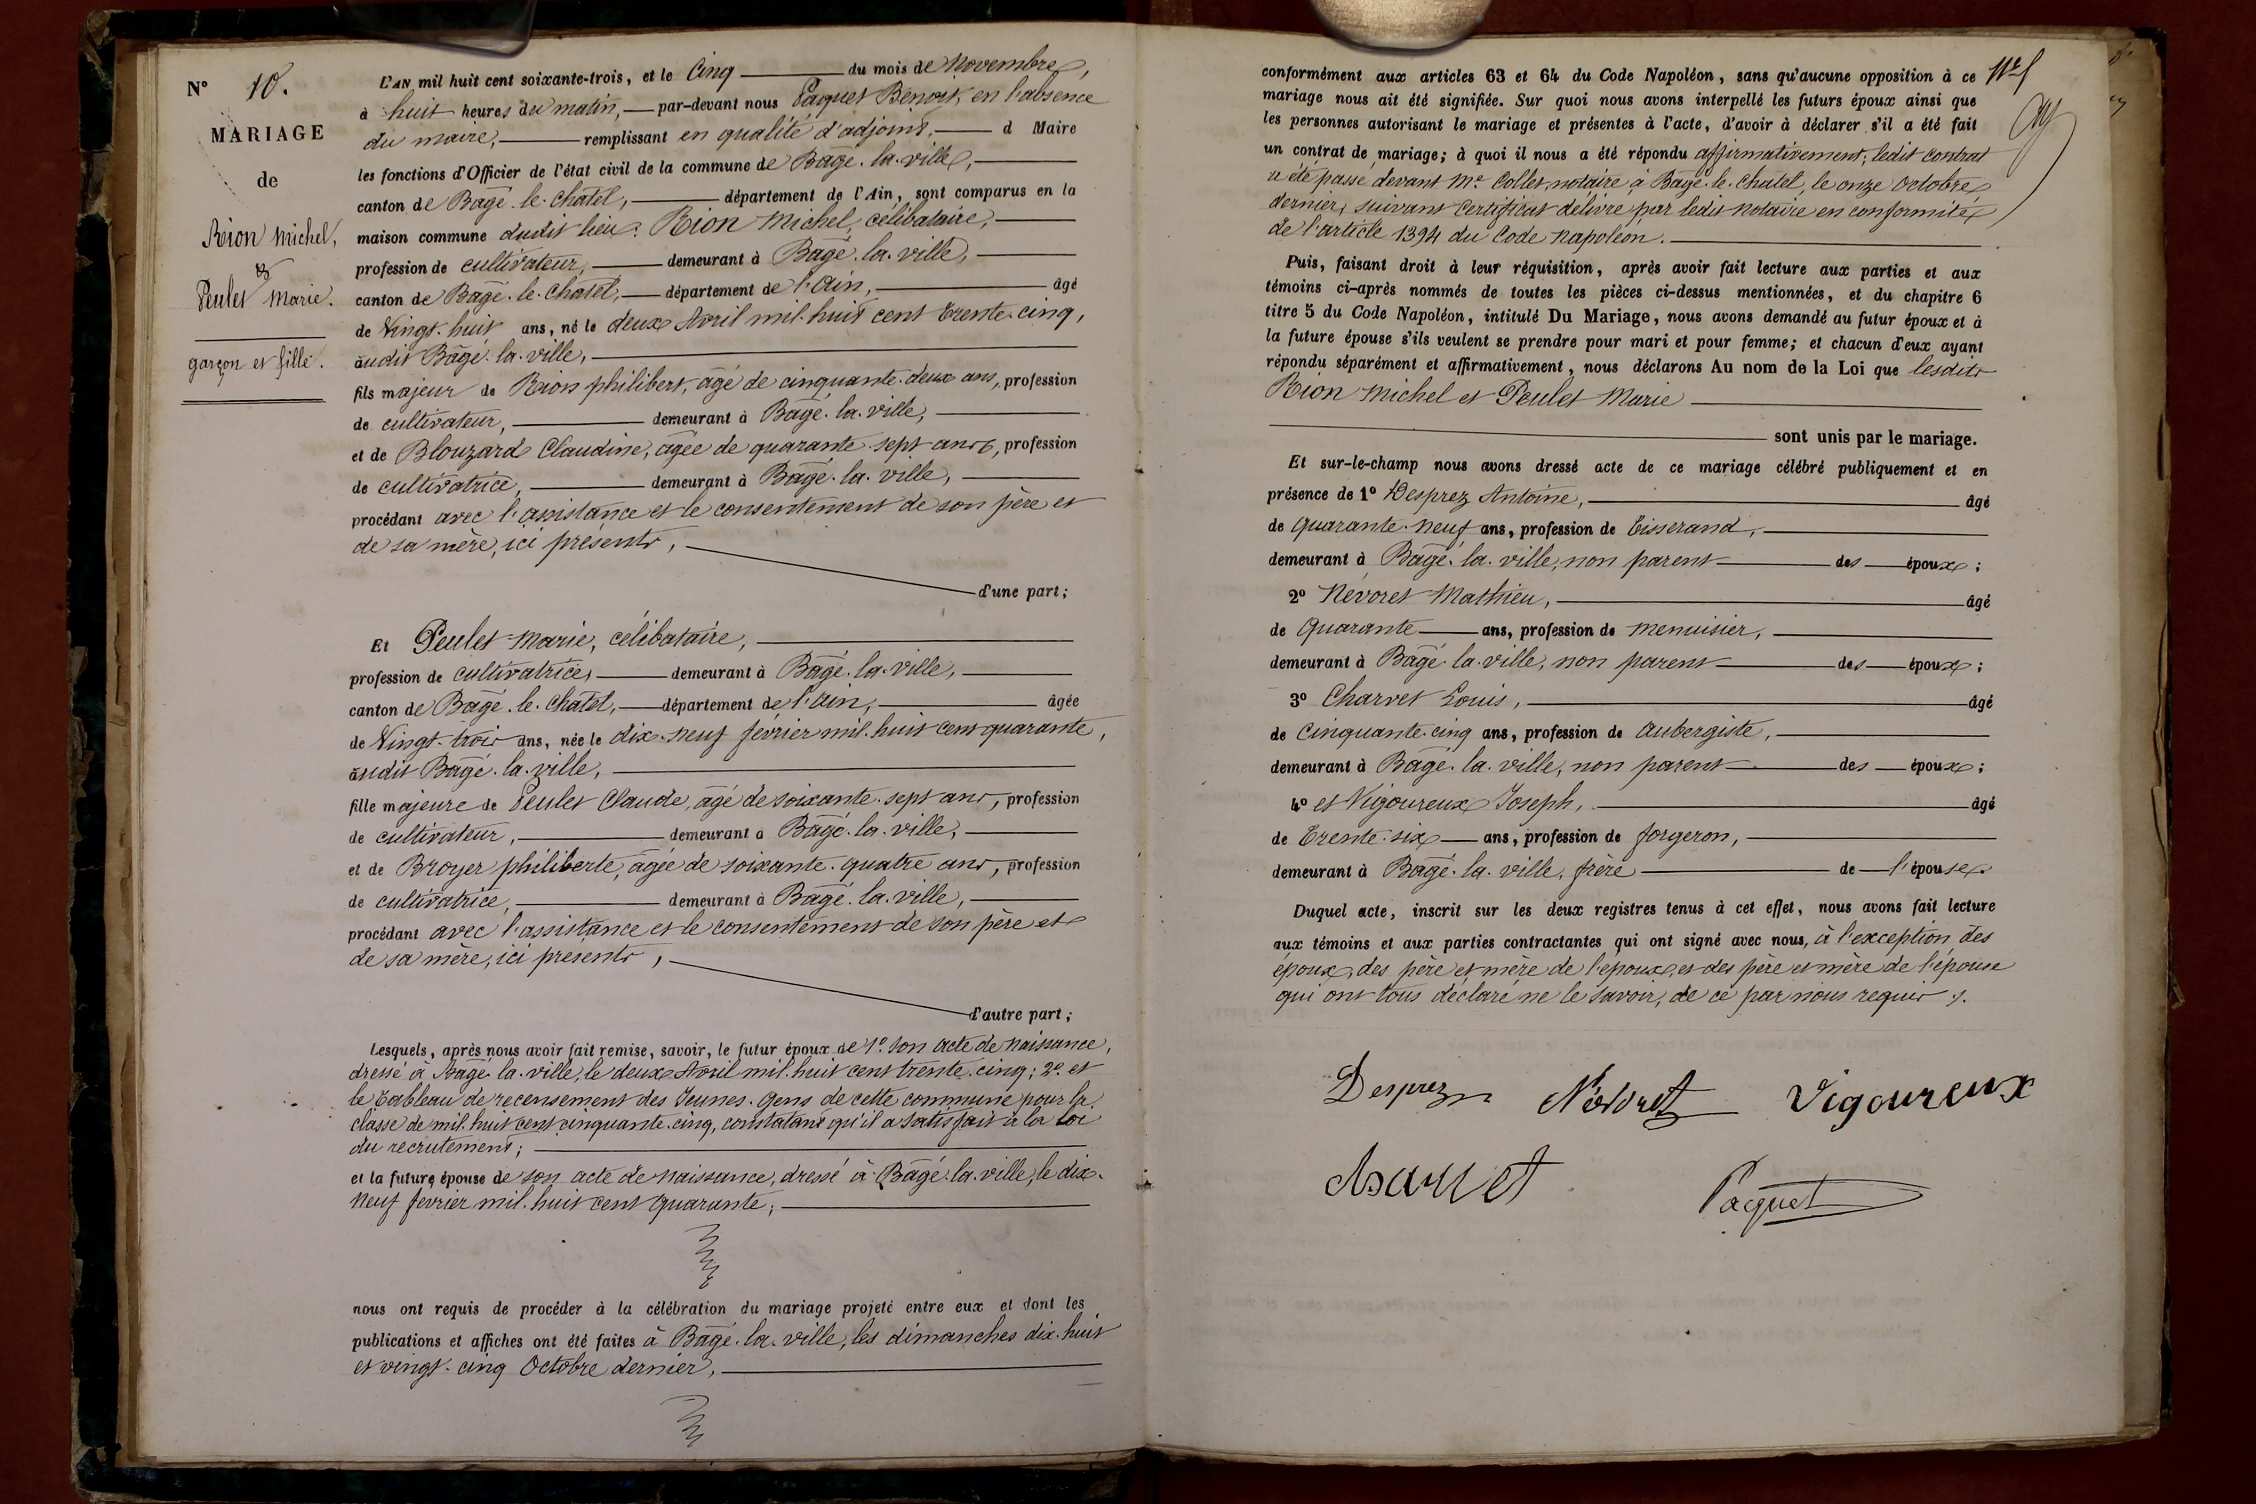 N° 10.
MARIAGE
de
Rion Michel,
et
Peulet Marie.
garçon et fille.
L'AN mil huit cent soixante-trois, et le Cinq du mois de Novembre,
à huit heures du matin, par-devant nous Paquet Benoit, en l'absence
du maire, remplissant en qualité d'adjoint, d Maire
les fonctions d'Officier de l'état civil de la commune de Bâgé-la-ville,
canton de Bâgé-le-Châtel, département de l'Ain, sont comparus en la
maison commune dudit lieu: Rion Michel, célibataire,
profession de cultivateur, demeurant à Bâgé-la-ville,
canton de Bâgé-le-Châtel, département de l'Ain, âgé
de Vingt-huit ans, né le deux Avril mil-huit cent trente-cinq,
audit Bâgé-la-ville,
fils majeur de Rion philibert, âgé de cinquante-deux ans, profession
de cultivateur, demeurant à Bâgé-la-ville,
et de Blouzard Claudine, âgée de quarante-sept ans, profession
de cultivatrice, demeurant à Bâgé-la-ville,
procédant avec l'assistance et le consentement de son père et
de sa mère, ici présents,
d'une part;
Et Peulet Marie, célibataire,
profession de cultivatrice, demeurant à Bâgé-la-ville,
canton de Bâgé-le-Châtel, département de l'Ain, âgée
de Vingt-trois ans, née le dix-neuf février mil-huit cent quarante,
audit Bâgé-la-ville,
fille majeure de Peulet Claude, âgé de soixante-sept ans, profession
de cultivateur, demeurant à Bâgé-la-ville,
et de Broyer philiberte, âgée de soixante-quatre ans, profession
de cultivatrice, demeurant à Bâgé-la-ville,
procédant avec l'assistance et le consentement de son père et
de sa mère, ici présents,
d'autre part;
Lesquels, après nous avoir fait remise, savoir, le futur époux de 1° son acte de naissance,
dressé à Bâgé-la-ville, le deux Avril mil-huit cent trente-cinq; 2° et
le Tableau de recensement des Jeunes-Gens de cette commune pour la
classe de mil-huit cent cinquante-cinq, constatant qu'il a satisfait à la loi
du recrutement;
et la future épouse de son acte de naissance, dressé à Bâgé-la-ville, le dix-
neuf février mil-huit cent quarante;
nous ont requis de procéder à la célébration du mariage projeté entre eux et dont les
publications et affiches ont été faites à Bâgé-la-ville, les dimanches dix-huit
et vingt-cinq Octobre dernier,
conformément aux articles 63 et 64 du Code Napoléon, sans qu'aucune opposition à ce
mariage nous ait été signifiée. Sur quoi nous avons interpellé les futurs époux ainsi que
les personnes autorisant le mariage et présentes à l'acte, d'avoir à déclarer s'il a été fait
un contrat de mariage; à quoi il nous a été répondu affirmativement, ledit contrat
a été passé devant Me Collet, notaire à Bâgé-le-Châtel, le onze Octobre
dernier, suivant Certificat délivré par ledit notaire en conformité
de l'article 1394 du Code Napoléon.
Puis, faisant droit à leur réquisition, après avoir fait lecture aux parties et aux
témoins ci-après nommés de toutes les pièces ci-dessus mentionnées, et du chapitre 6
titre 5 du Code Napoléon, intitulé Du Mariage, nous avons demandé au futur époux et à
la future épouse s'ils veulent se prendre pour mari et pour femme; et chacun d'eux ayant
répondu séparément et affirmativement, nous déclarons Au nom de la Loi que lesdits
Rion Michel et Peulet Marie
sont unis par le mariage.
Et sur-le-champ nous avons dressé acte de ce mariage célébré publiquement et en
présence de 1° Desprez Antoine, âgé
de quarante-neuf ans, profession de Tisserand,
demeurant à Bâgé-la-ville, non parent des époux;
2° Névoret Mathieu, âgé
de quarante ans, profession de menuisier,
demeurant à Bâgé-la-ville, non parent des époux;
3° Charvet Louis, âgé
de cinquante-cinq ans, profession de Aubergiste,
demeurant à Bâgé-la-ville, non parent des époux;
4° et Vigoureux Joseph, âgé
de trente-six ans, profession de forgeron,
demeurant à Bâgé-la-ville, frère de l'épouse.
Duquel acte, inscrit sur les deux registres tenus à cet effet, nous avons fait lecture
aux témoins et aux parties contractantes qui ont signé avec nous, à l'exception des
époux, des père et mère de l'époux, et des père et mère de l'épouse
qui ont tous déclaré ne le savoir, de ce par nous requis ./.
Desprez Névoret Vigoureux
Charvet Paquet